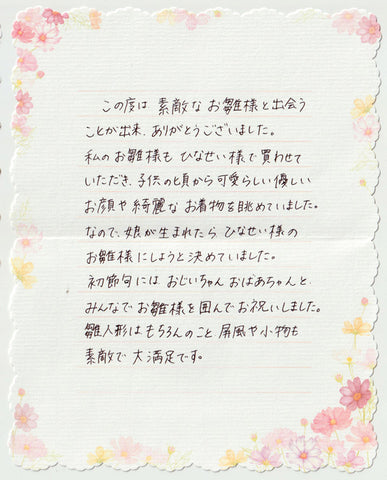 この度は 素敵な お雛様と出会う
ことが出来、ありがとうございました。
私のお雛様も ひなせい様で買わせて
いただき、子供の頃から可愛らしい優しい
お顔や 綺麗な お着物を眺めていました。
なので、娘が生まれたら、ひなせい様の
お雛様にしようと決めていました。
初節句には おじいちゃん おばあちゃんと、
みんなでお雛様を囲んでお祝いしました。
雛人形はもちろんのこと、屏風や小物も
素敵で 大満足です。